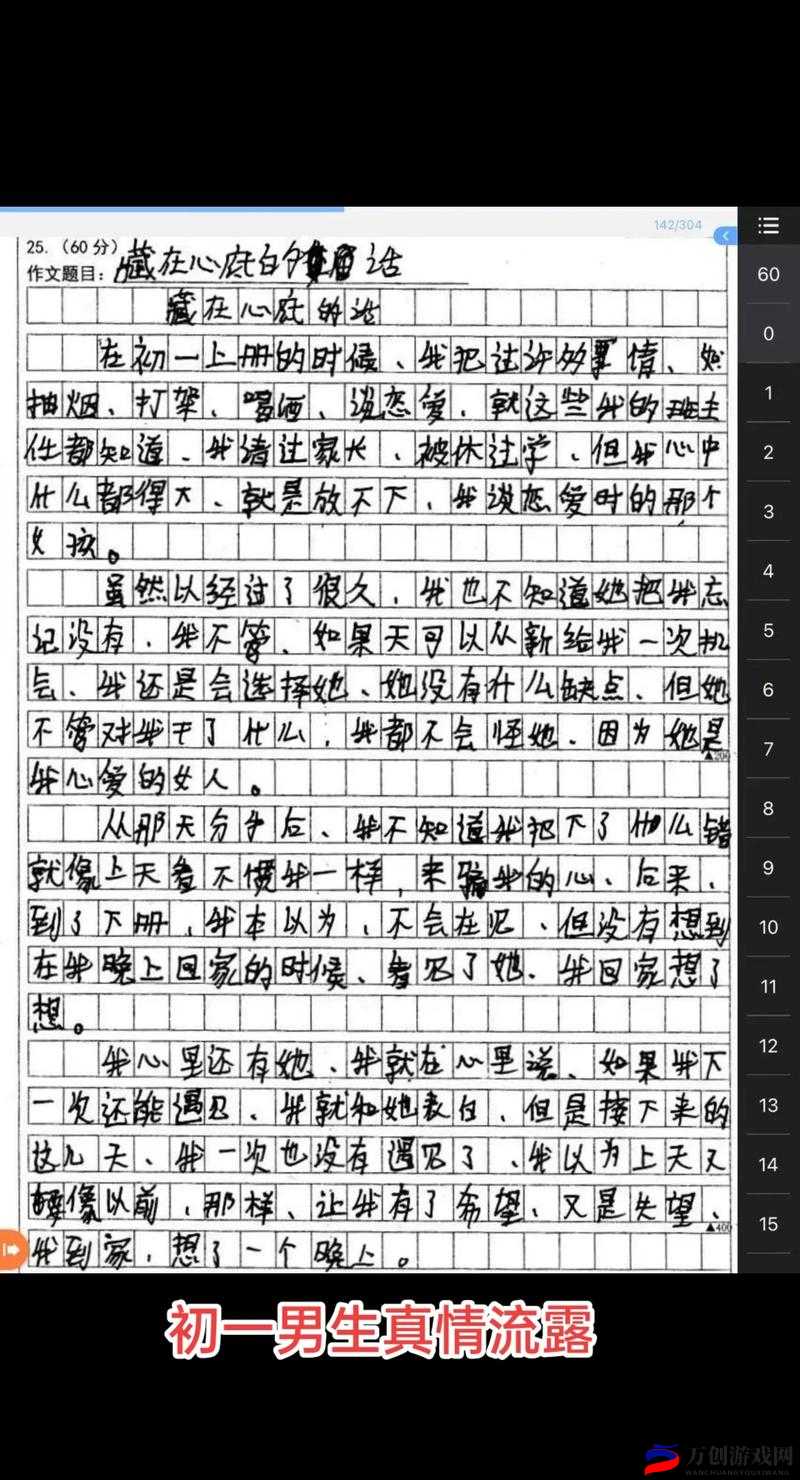 142/304
25.（60分）
作文题目：藏在心底的话
藏在心底的话
在初一上册的时候、我犯过许多事情、如
抽烟、打架、喝酒、谈恋爱、就这些我的班主
任都知道、我请过家长、被休过学、但我心中
什么都得大、就是放不下、我谈恋爱时的那个
女孩。
虽然以经过了很久、我也不知道她把我忘
记没有、我不管、如果天可以从新给我一次机
会、我还是会选择她、她没有什么缺点、但她
不管对我干了什么、我都不会怪她、因为她是
▲200
我心爱的女人。
从那天分手后、我不知道我犯下了什么错
就像上天看不惯我一样，来骗我的心、后来、
到了下册、我本以为、不会在见、但没有想到
在我晚上回家的时候、看见了她、我回家想了
想。
我心里还有她、我就在心里说、如果我下
一次还能遇见、我就和她表白、但是接下来的
这几天、我一次也没有遇见了、我以为上天又
像以前、那样、让我有了希望、又是失望、
▲400
我到家、想了一个晚上。
60
0
1
2
3
4
5
6
7
8
9
10
11
12
13
14
15
初一男生真情流露
万创游戏网
WANCHUANGYOUXIWANG